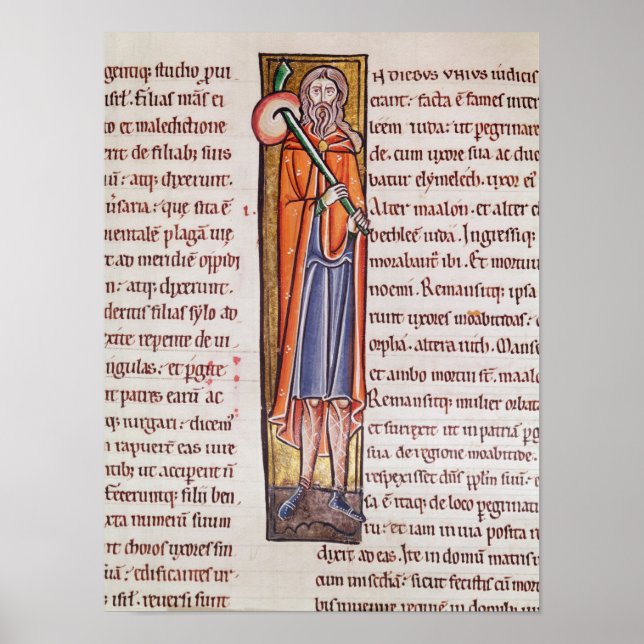 gentiq; studio pui
isrl. Filias nr̄as ei
to et maledictione
erit de filiab; suis
ū: atq; dixerunt.
ūsaria: que sita ē
ientalē plagā uie
et ad meridiē oppidi
: atq; dixerunt.
dexitis filias sylo ad
exite repente de ui
ingulas: et pgite
it patres earū ac
iurgari: dicem
rapuert eas iure
ntib; ut acciperent ñ
Feceruntq; filii ben
xta numerū suum
t choros uxores sin
uā: edificantes ur
isrl. reuersi sunt
IN DIEBUS UNIUS iudicis
erant: facta ē fames inter
leem iuda: ut pegrinare
de. cum uxore sua ac duo
batur elymelech. uxor ei
Alter maalon. et alter ch
bethleē iuda. Ingressiq;
morabant ibi. Et mortuu
noemi. Remansitq; ipsa
runt uxores moabitidas:
orpha. altera ruth. Manse
et ambo mortui st̄. maalo
Remansitq; mulier orbata
et surrexit ut in patriā p
sua de regione moabitide.
respexisset dn̄s pplm suū: e
sa ē itaq; de loco pegrinati
ru: et iam in uia posita r
dixit ad eas. Ite in domū matris u
cum misediā: sicut fecistis cū mor
bis inuenire requiem in domib; ui